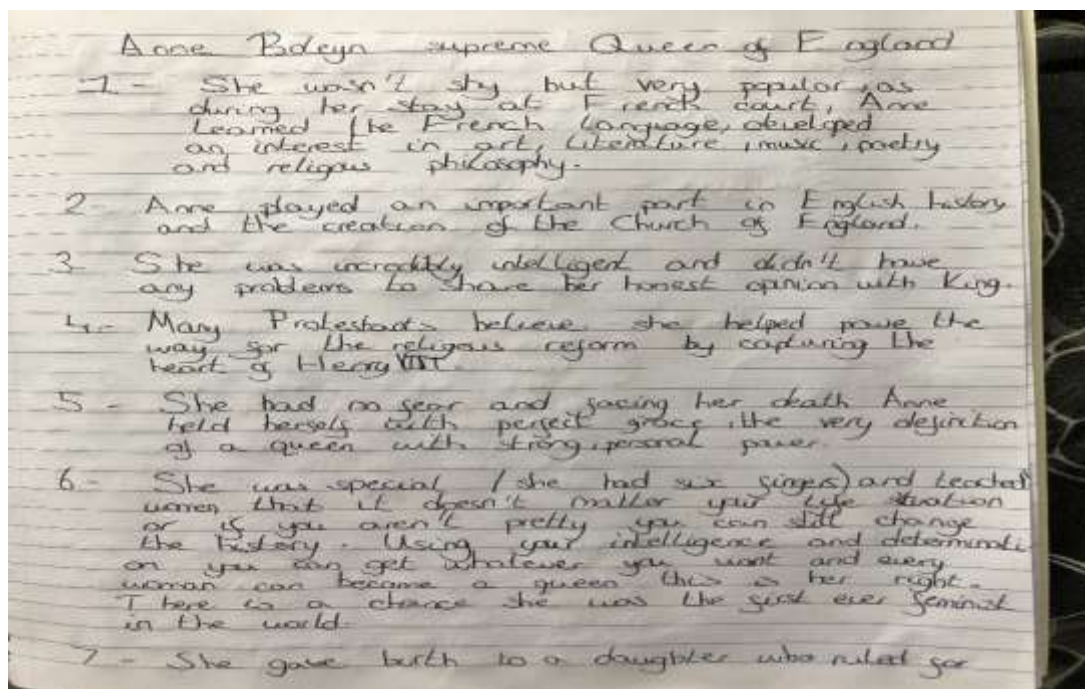 Anne Boleyn supreme Queen of England
1 - She wasn't shy but very popular, as
during her stay at French court, Anne
Learned the French Language, developed
an interest in art, Literature, music, poetry
and religous philosophy.
2 - Anne played an important part in English history
and the creation of the Church of England.
3 She was incredibly intelligent and didn't have
any problems to share her honest opinion with King.
4 - Many Protestants believe she helped pave the
way for the religous reform by capturing the
heart of Henry VIII.
5 - She had no fear and facing her death Anne
held herself with perfect grace, the very definition
of a queen with strong, personal power.
6 - She was special (she had six fingers) and teached
women that it doesn't matter your life situation
or if you aren't pretty you can still change
the history. Using your intelligence and determinati
on you can get whatever you want and every
woman can become a queen this is her right.
There is a chance she was the first ever feminist
in the world.
7 - She gave birth to a daughter who ruled for